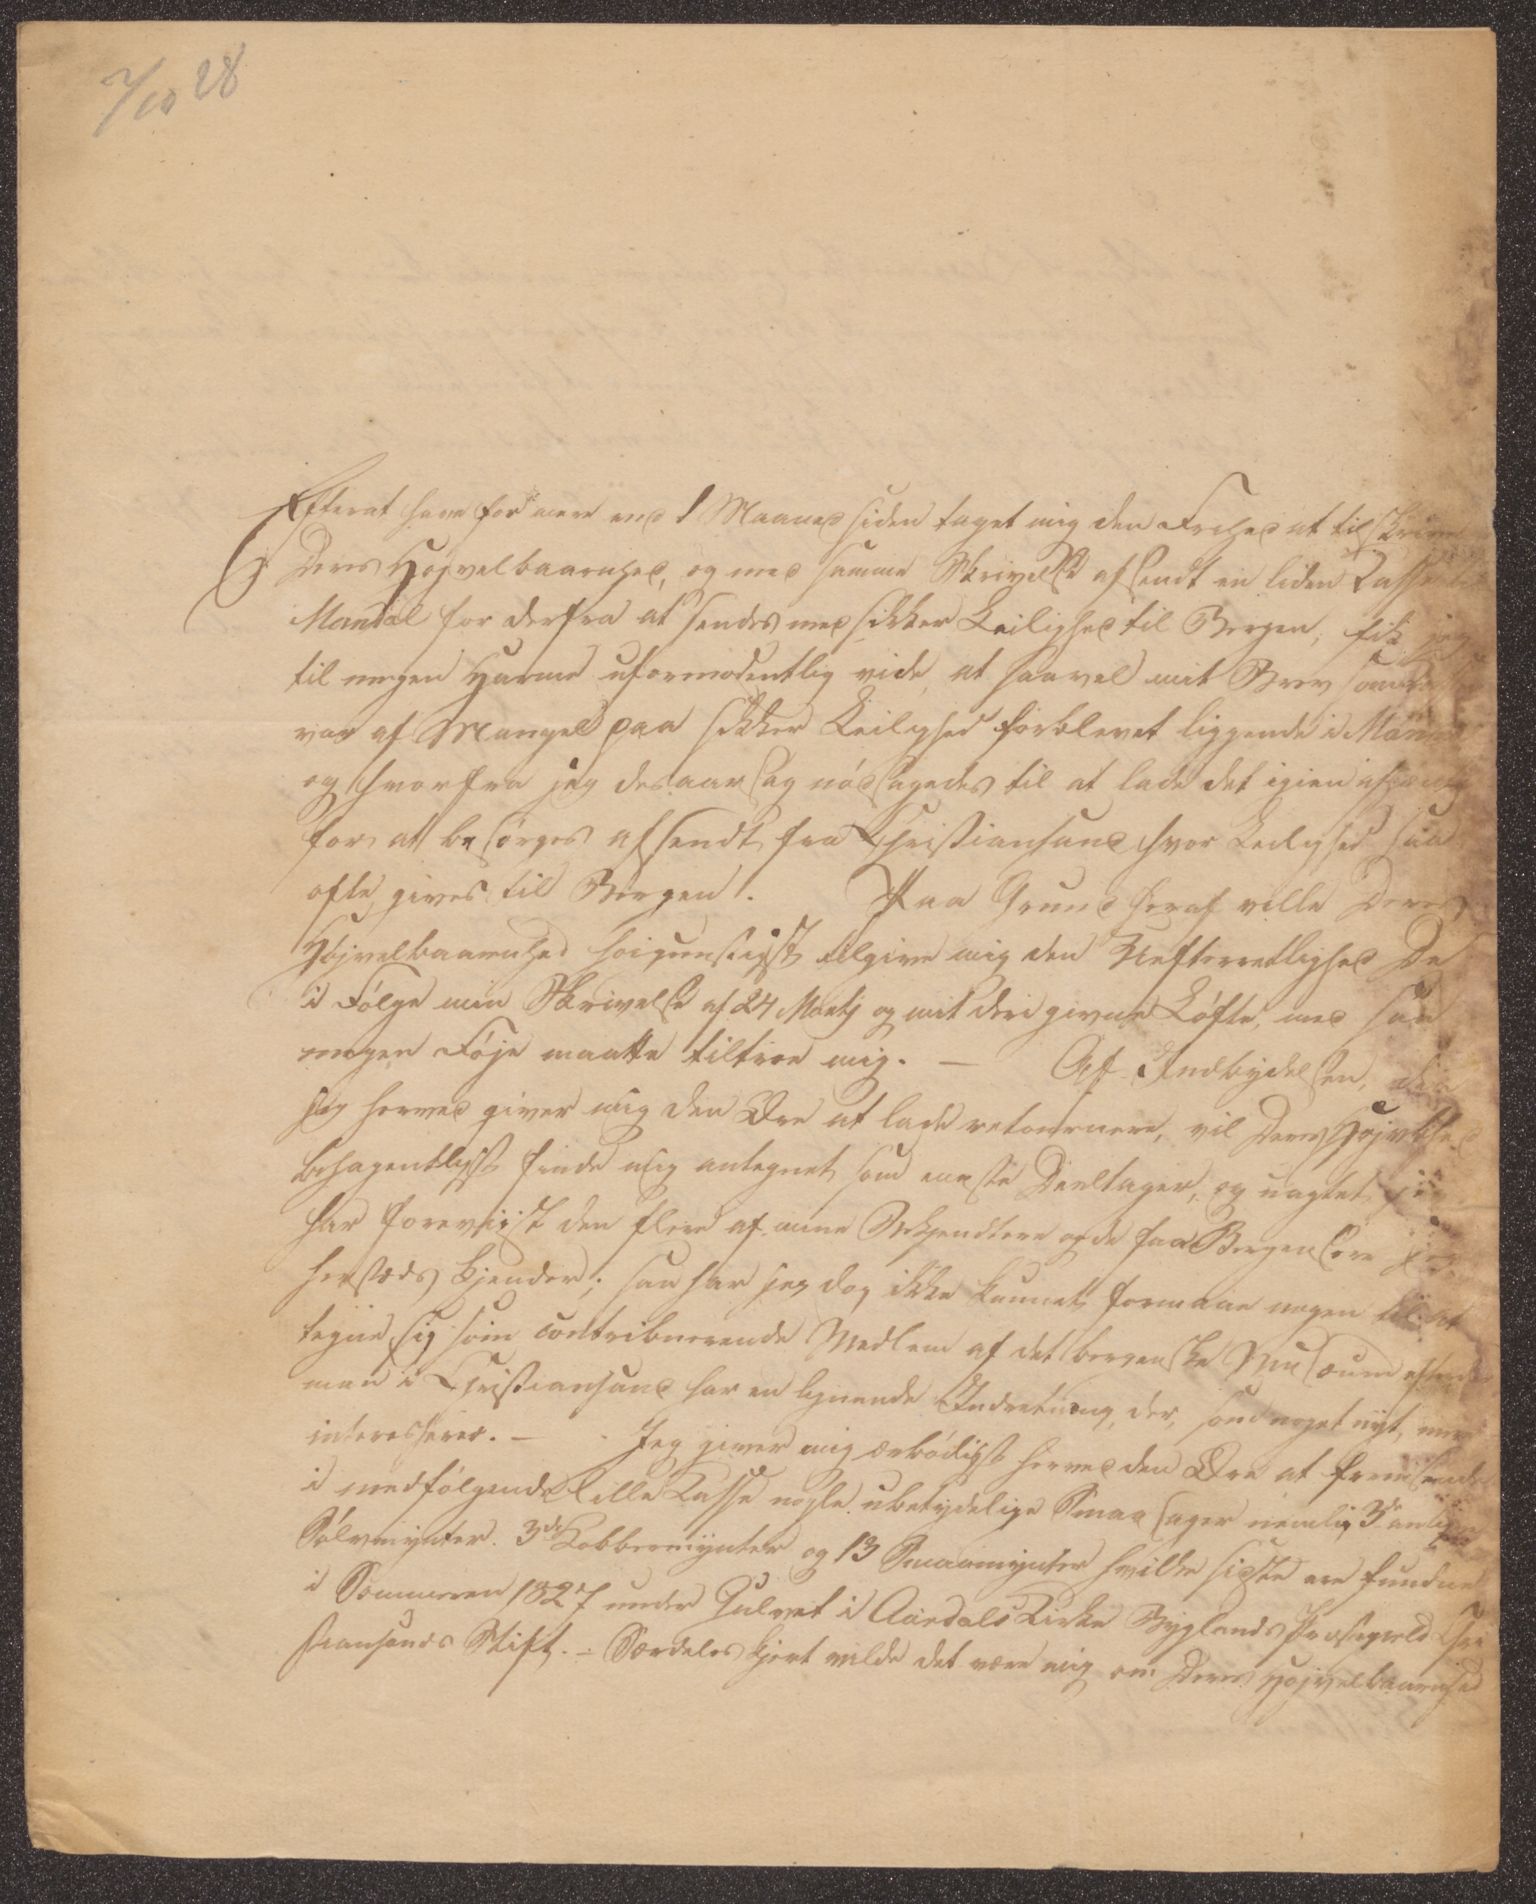 7/10 28
Efterat have for mere end 1 Maaned siden taget mig den Frihed at tilskrive
Deres Højvelbaarnhed, og med samme Skrivelse afsendt en liden Kasse
Mandal for derfra at sendes med sikker Leilighed til Bergen, fik jeg
til megen Harme uformodentlig vide, at saavel mit Brev som
var af Mangel paa sikker Leilighed forblevet liggende i Mandal
og hvorfra jeg desaarsag nødsagedes til at lade det igien
for at besørges afsendt fra Christiansand hvor Leilighed saa
ofte gives til Bergen. Paa Grund heraf ville Deres
Højvelbaarnhed høigunstigst tilgive mig den Uefterretlighed De
i Følge min Skrivelse af 24 og mit deri givne Løfte, med saa
megen Føje maatte tiltroe mig. — Af Indbydelsen, den
jeg herved giver mig den Ære at lade retournere, vil Deres
behagentligst finde mig antegnet som eneste Deeltager, og uagtet jeg
har foreviist den flere af mine Bekjendtere og de faa Bergensere jeg
herstæds kjender; saa har jeg dog ikke kunnet formaae nogen til at
tegne sig som contribuerende Medlem af det bergenske Musæum efterdi
man i Christiansand har en lignende Indretning, der, som noget nyt, meer
interesserer. — Jeg giver mig ærbødigst herved den Ære at fremsende
i medfølgende lille Kasse nogle ubetydelige Smaasager nemlig 3de
Sølvmynter. 3de Kobbermynter og 13 Smaamynter hvilke sidste ere fundne
i Sommeren 1827 under Gulvet i Aardals Kirke Byglands Præstegield Chri
stiansands Stift. — Særdeles kjert vilde det være mig om Deres Højvelbaarnhed